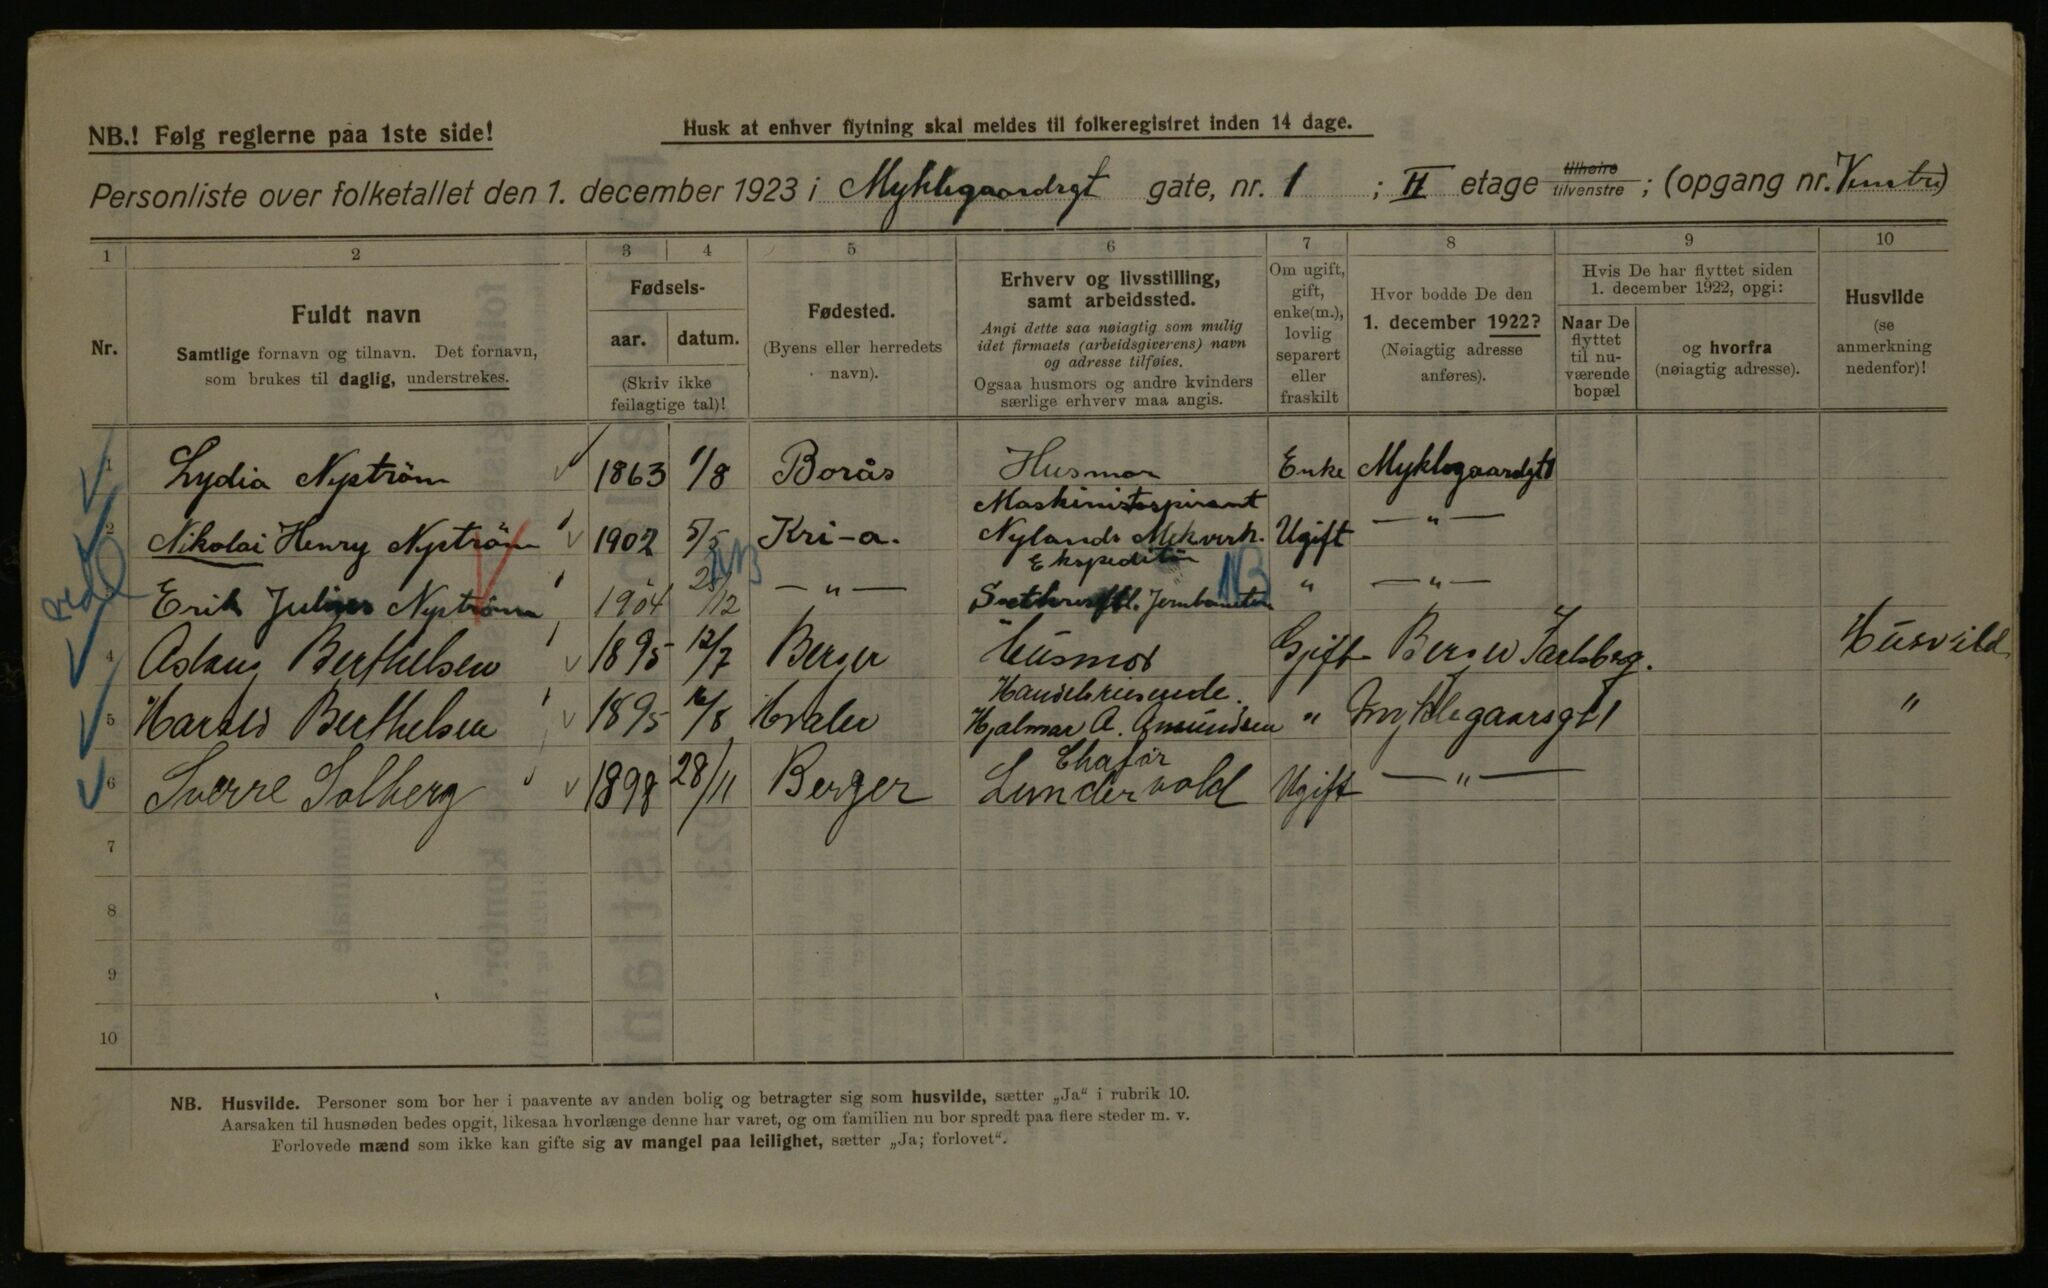 NB.! Følg reglerne paa 1ste side!
Husk at enhver flytning skal meldes til folkeregistret inden 14 dage.
Personliste over folketallet den 1. december 1923 i Myklegaardsgt gate, nr. 1 ; II etage tilhøire tilvenstre ; (opgang nr. Venstre)
1 2 3 4 5 6 7 8 9 10
Nr.
Fuldt navn
Samtlige fornavn og tilnavn. Det fornavn,
som brukes til daglig, understrekes.
Fødsels-
aar. datum.
(Skriv ikke
feilagtige tal)!
Fødested.
(Byens eller herredets
navn).
Erhverv og livsstilling,
samt arbeidssted.
Angi dette saa nøiagtig som mulig
idet firmaets (arbeidsgiverens) navn
og adresse tilføies.
Ogsaa husmors og andre kvinders
særlige erhverv maa angis.
Om ugift,
gift,
enke(m.),
lovlig
separert
eller
fraskilt
Hvor bodde De den
1. december 1922?
(Nøiagtig adresse
anføres).
Hvis De har flyttet siden
1. december 1922, opgi:
Naar De
flyttet
til nu-
værende
bopæl
og hvorfra
(nøiagtig adresse).
Husvilde
(se
anmerkning
nedenfor)!
1 Lydia Nyström 1863 1/8 Borås Husmor Enke Myklegaardgt 1
Maskinistaspirant
2 Nikolai Henry Nyström 1902 5/5 Kri-a. Nylands Mek verk. Ugift — " —
NB Ekspeditør NB
Erik Julius Nyström 1904 /12 — " — Jernbaneten " — " —
4 Aslaug Berthelsen 1895 12/7 Berger Husmor Gift Berger Jarlsberg. Husvild
Handelsreisende.
5 Harald Berthelsen 1895 16/8 Hvaler Hjalmar A. Amundsen " Myklegaarsgt 1 "
Chafør
6 Sverre Solberg 1898 28/11 Berger Lundervold Ugift — " —
7
8
9
10
NB. Husvilde. Personer som bor her i paavente av anden bolig og betragter sig som husvilde, sætter „Ja“ i rubrik 10.
Aarsaken til husnøden bedes opgit, likesaa hvorlænge denne har varet, og om familien nu bor spredt paa flere steder m. v.
Forlovede mænd som ikke kan gifte sig av mangel paa leilighet, sætter „Ja; forlovet“.